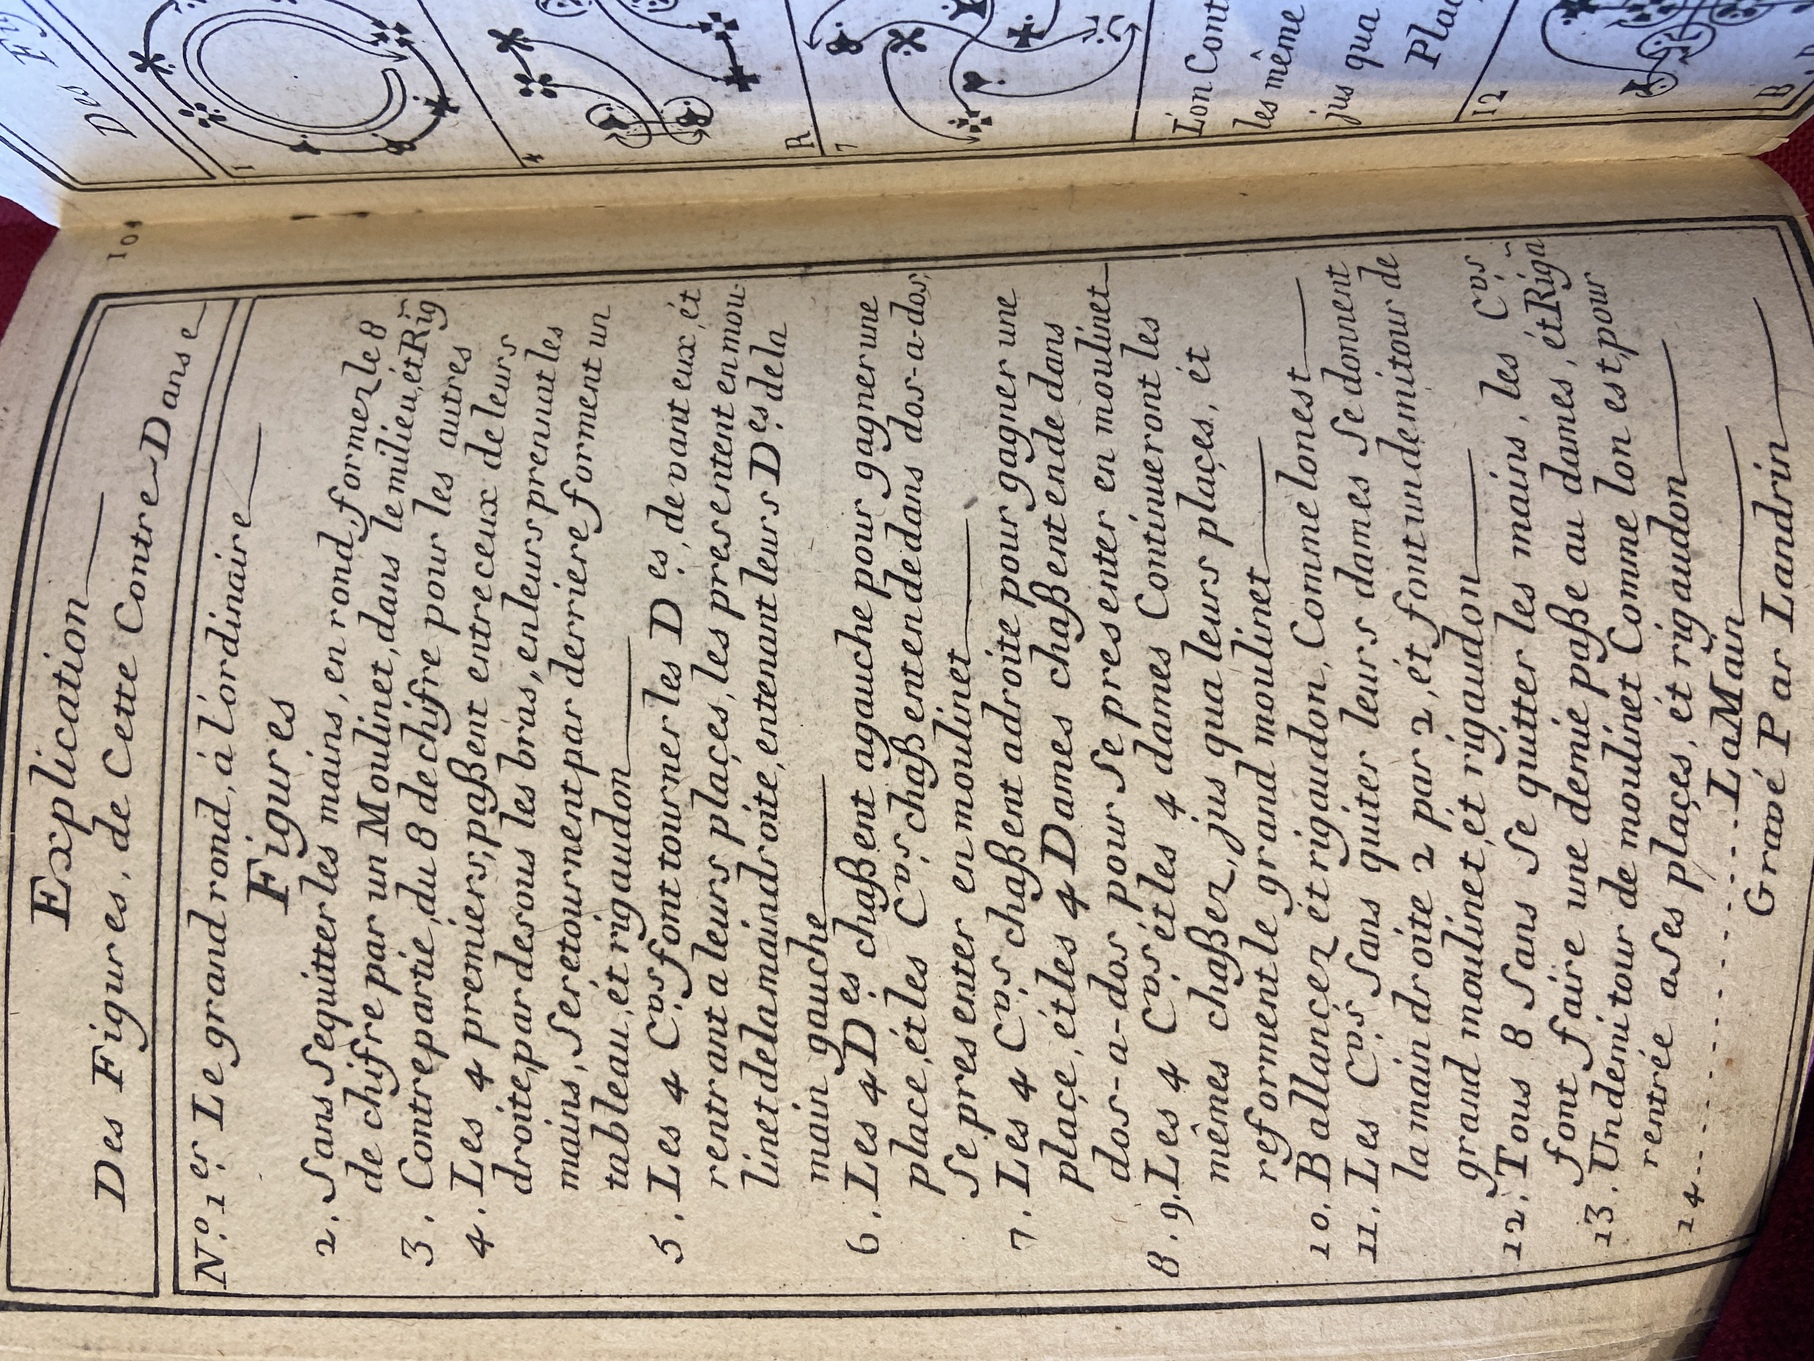 101
Explication
Des Figures, de Cette Contre-Danse
N.º 1.er Le grand rond, á lórdinaire
Figures
2. Sans Sequitter les mains, en rond, former le 8
de chifre par un Moulinet, dans le milieu, ét Rig
3. Contrepartie, du 8 de chifre pour les autres
4. Les 4 premiers, paßent entre ceux de leurs
droite, par desous les bras, en leurs prennat les
mains, Se retournent par derriere forment un
tableau, ét rigaudon
5. Les 4 C.vrs font tourner les D.es, devant eux, ét
rentrant a leurs plaçes, les presentent en mou-
linet de la main droite, en tenant leurs D.es de la
main gauche
6. Les 4 D.es chaßent agauche pour gagner une
place, ét les C.vrs chaßent en dedans dos-a-dos,
Se presenter en moulinet
7. Les 4 C.vrs chaßent adroite pour gagner une
plaçe, ét les 4 Dames chaßent en dedans
dos-a-dos pour Se presenter en moulinet
8. 9. Les 4 C.vrs ét les 4 dames Continueront les
mêmes chaßez, jus qua leurs plaçes, ét
reforment le grand moulinet
10. Ballançez ét rigaudon, Comme lon est
11. Les C.vrs Sans quiter leurs dames Se donnent
la main droite 2 par 2, ét font un demi tour de
grand moulinet, ét rigaudon
12. Tous 8 Sans Se quitter les mains, les C.vrs
font faire une demie paße au dames, ét Riga
13. Un demi tour de moulinet Comme lon est, pour
rentrée a Ses plaçes, ét rigaudon
14 ............ La Main
Gravé Par Landrin
Des Fig
1
4
R
7
L'on Cont
les même
jus qua
Plaç
12
B